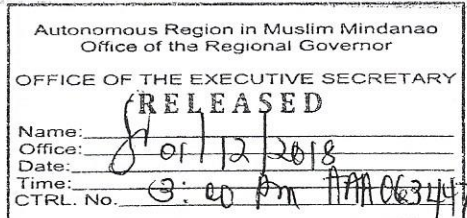 Autonomous Region in Muslim Mindanao
Office of the Regional Governor
OFFICE OF THE EXECUTIVE SECRETARY
RELEASED
Name:
Office:
Date: 01/12/2018
Time: 3:00 pm
CTRL. No. AAA06344